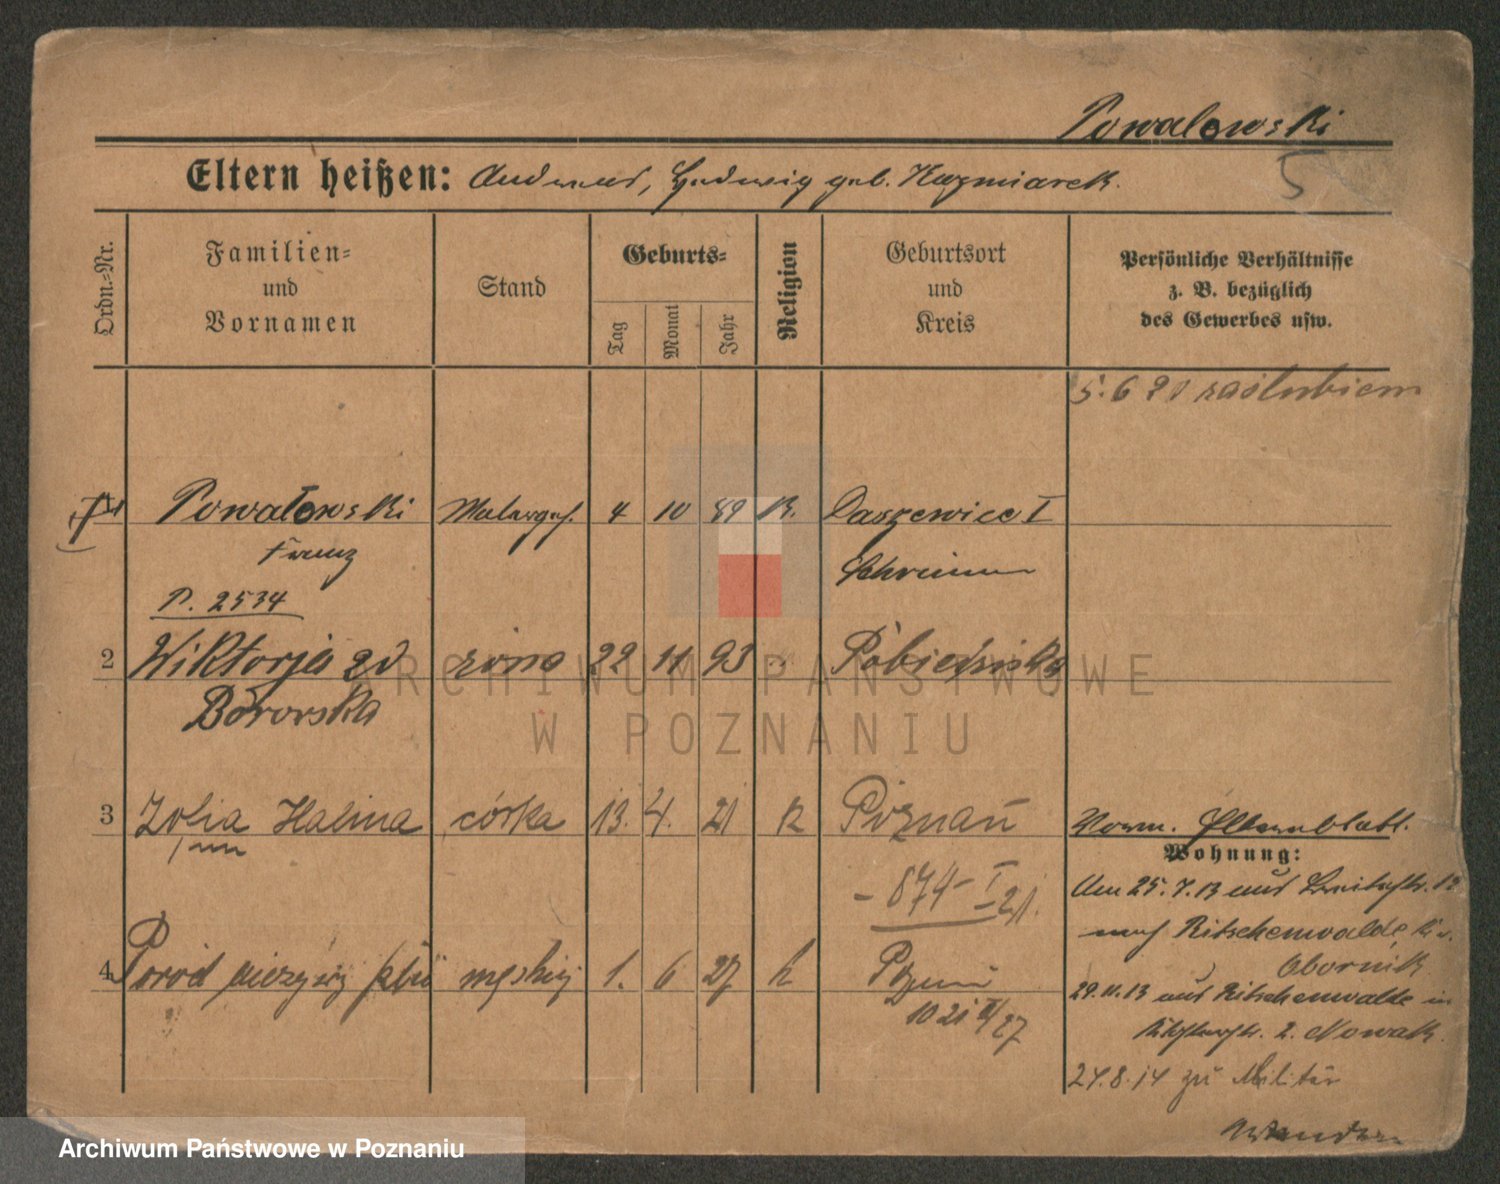 Powalowski
5
Eltern heißen: Andreas, Hedwig geb. Kaczmiarek.
Ordn.-Nr.
Familien-
und
Vornamen
Stand
Geburts-
Tag
Monat
Jahr
Religion
Geburtsort
und
Kreis
Persönliche Verhältnisse
z. B. bezüglich
des Gewerbes usw.
5. 6 20 zaślubiem
Powałowski Malergeh. 4 10 89 K. Daszewice I
Franz Schrimm
P. 2534
2 Wiktorja zd żona 22 11 93 " Pobiedziska
Borowska
3 Zofia Halina córka 13. 4. 21 k Poznań
Vorm. Elternblatt.
Wohnung:
- 874 - I - 21.
Am 25. 7. 13 aus Breitestr. 12
nach Ritschenwalde, Kr.
Obornik
4 Poród nieżywy płci męskiej 1. 6 27 k Poznań
10 21 II/27
29. 11. 13 aus Ritschenwalde in
2. Nowak.
24. 8. 14 zu Militär
ARCHIWUM PAŃSTWOWE
W POZNANIU
Archiwum Państwowe w Poznaniu